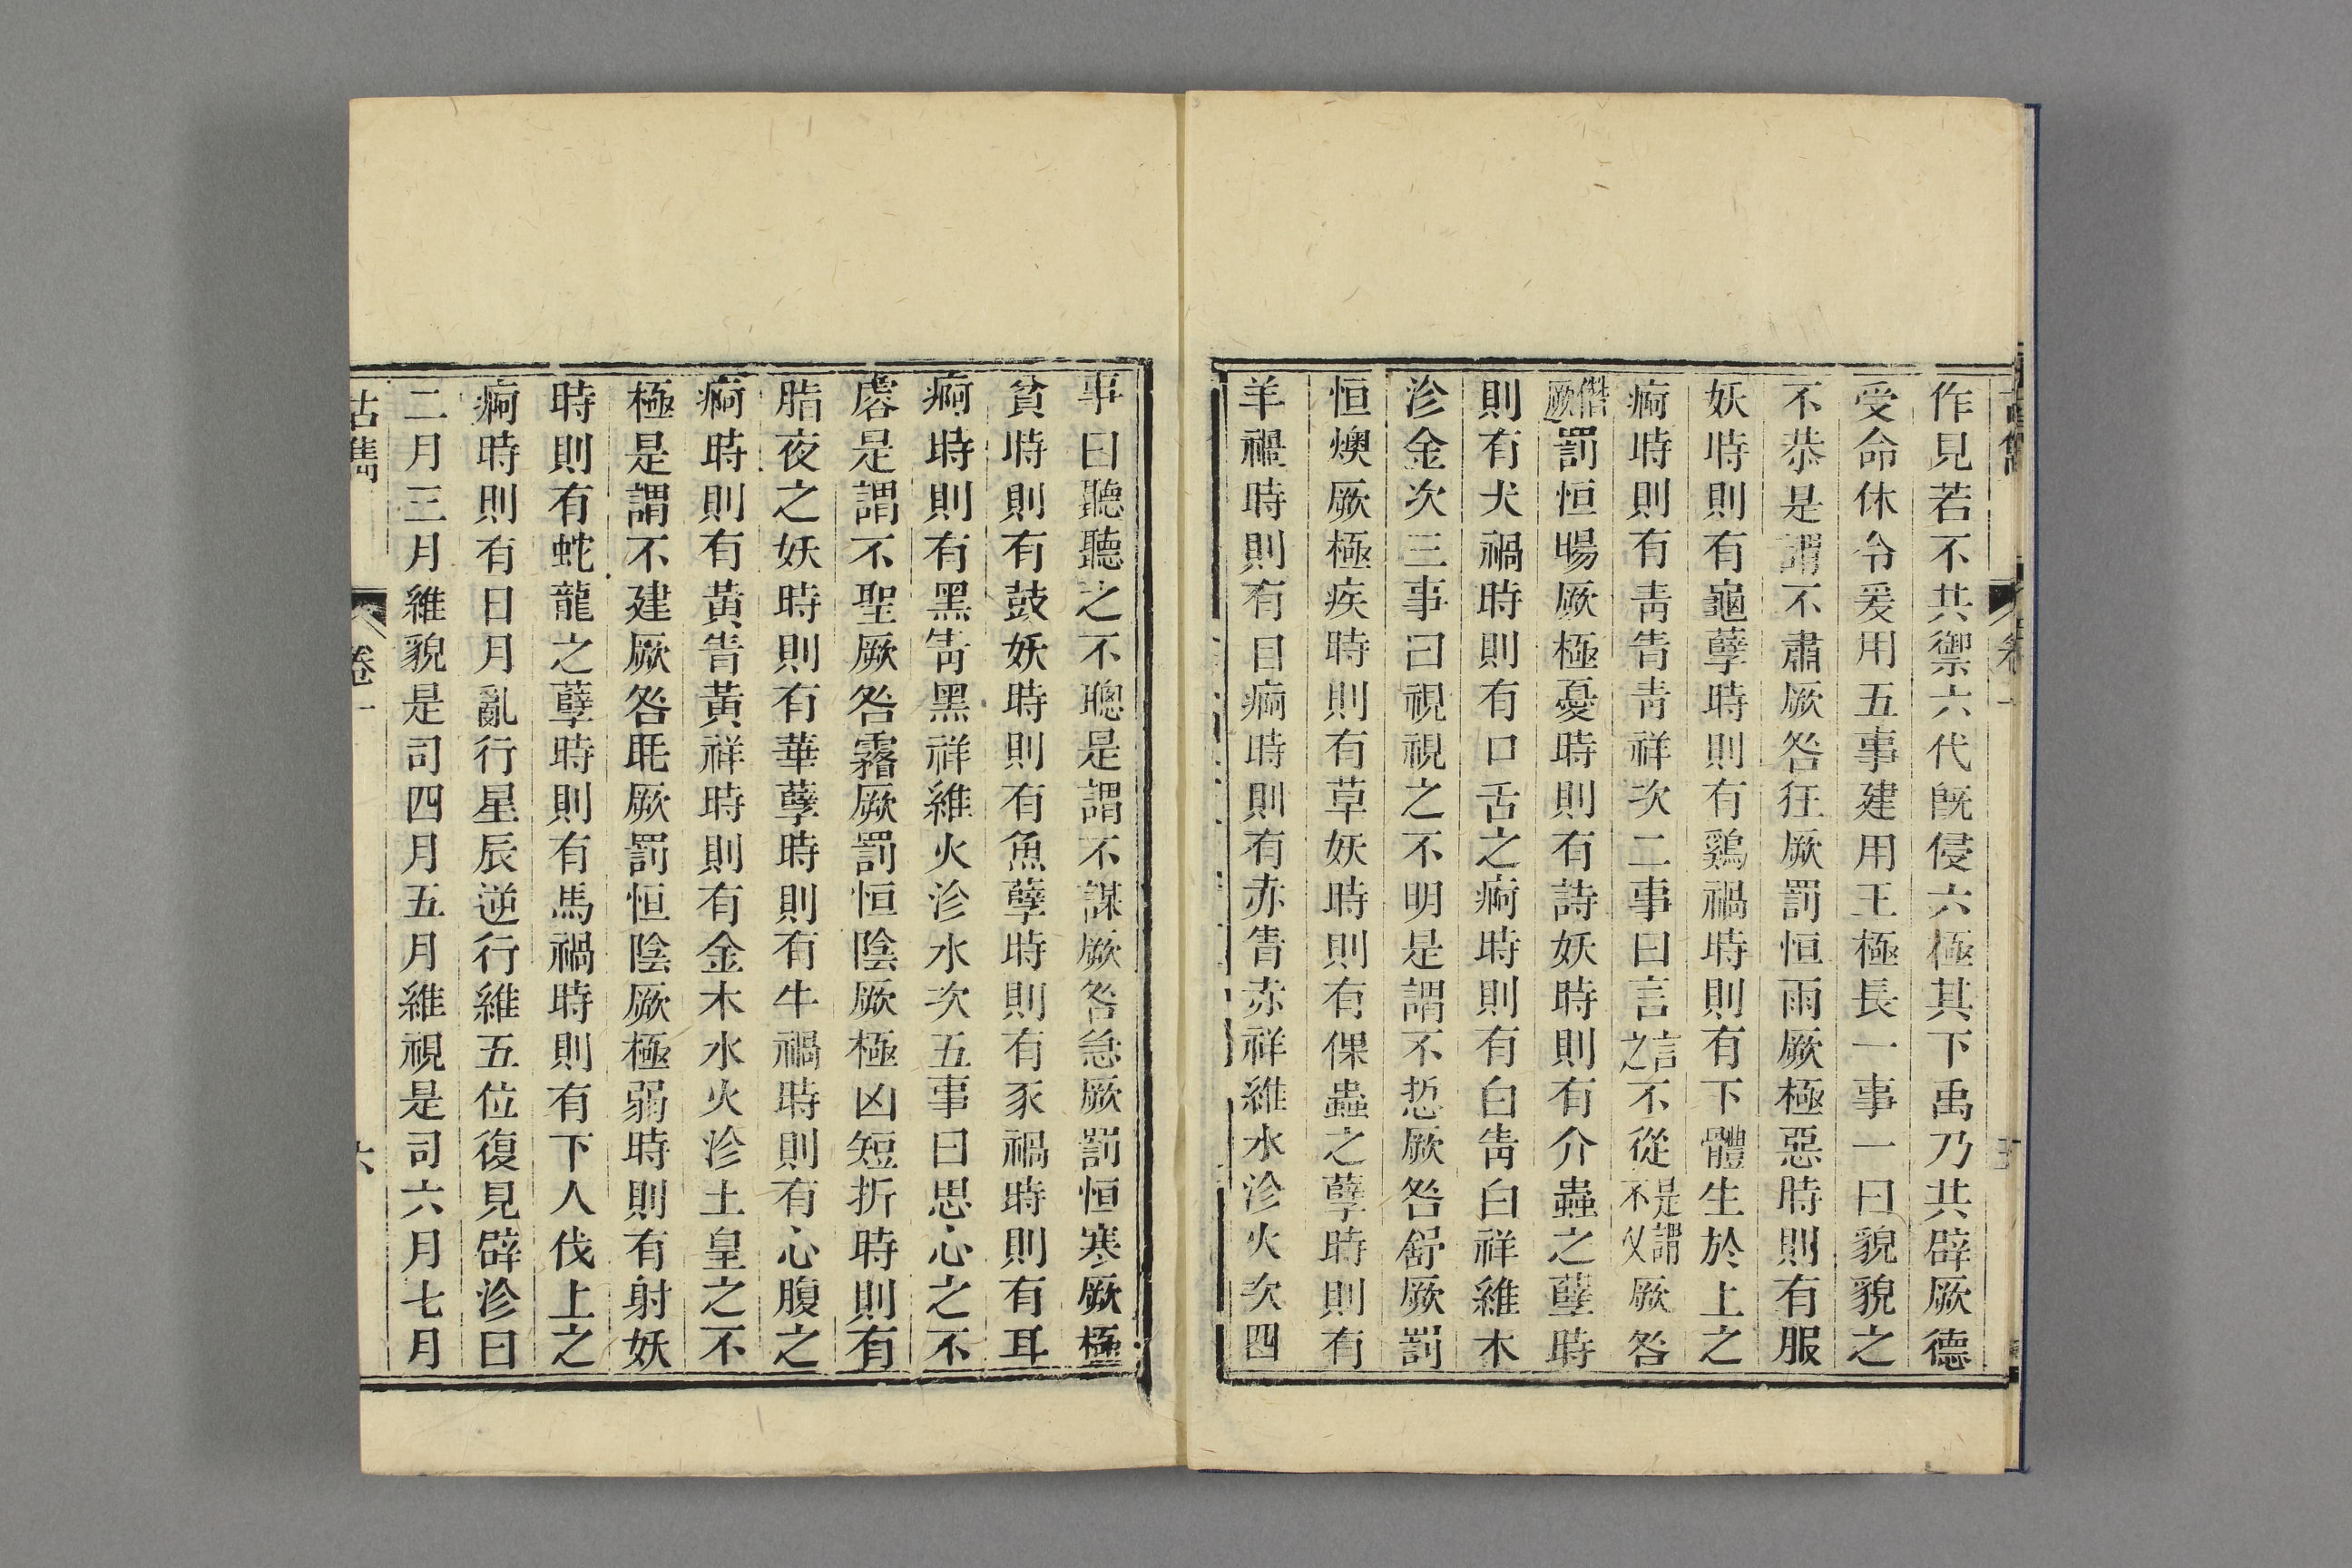 作見若不共禦六代既侵六極其下禹乃共辟厥德
受命休令爰用五事建用王極長一事一曰貌貌之
不恭是謂不肅厥咎狂厥罰恒雨厥極惡時則有服
妖時則有龜孽時則有鷄禍時則有下體生於上之
痾時則有青眚青祥次二事曰言言之不從是謂不乂厥咎
僭厥罰恒暘厥極憂時則有詩妖時則有介蟲之孽時
則有犬禍時則有口舌之痾時則有白眚白祥維木
沴金次三事曰視視之不明是謂不悊厥咎舒厥罰
恒燠厥極疾時則有草妖時則有倮蟲之孽時則有
羊禍時則有目痾時則有赤眚赤祥維水沴火次四
事曰聽聽之不聰是謂不謀厥咎急厥罰恒寒厥極
貧時則有鼓妖時則有魚孽時則有豕禍時則有耳
痾時則有黑眚黑祥維火沴水次五事曰思心之不
睿是謂不聖厥咎霿厥罰恒陰厥極凶短折時則有
脂夜之妖時則有華孽時則有牛禍時則有心腹之
痾時則有黃眚黃祥時則有金木水火沴土皇之不
極是謂不建厥咎眊厥罰恒陰厥極弱時則有射妖
時則有蛇龍之孽時則有馬禍時則有下人伐上之
痾時則有日月亂行星辰逆行維五位復見辟沴曰
二月三月維貌是司四月五月維視是司六月七月
卷一
六